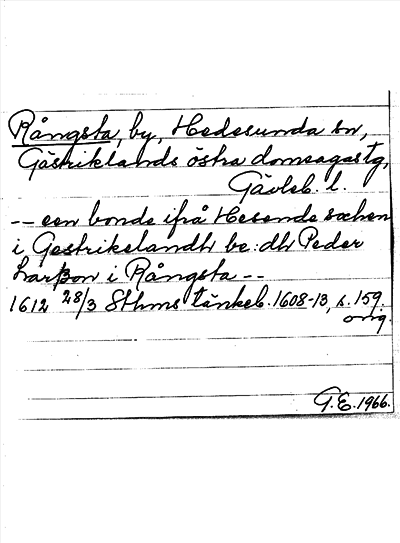 Rångsta, by, Hedesunda sn,
Gästriklands östra domsagas tg,
Gävleb. l.
-- een bonde ifrå Hesende sochen
i Gestrikelandh be:dh Peder
Larßon i Rångsta --
1612 28/3 Sthms tänkeb. 1608-13, s. 159.
orig.
G.E. 1966.